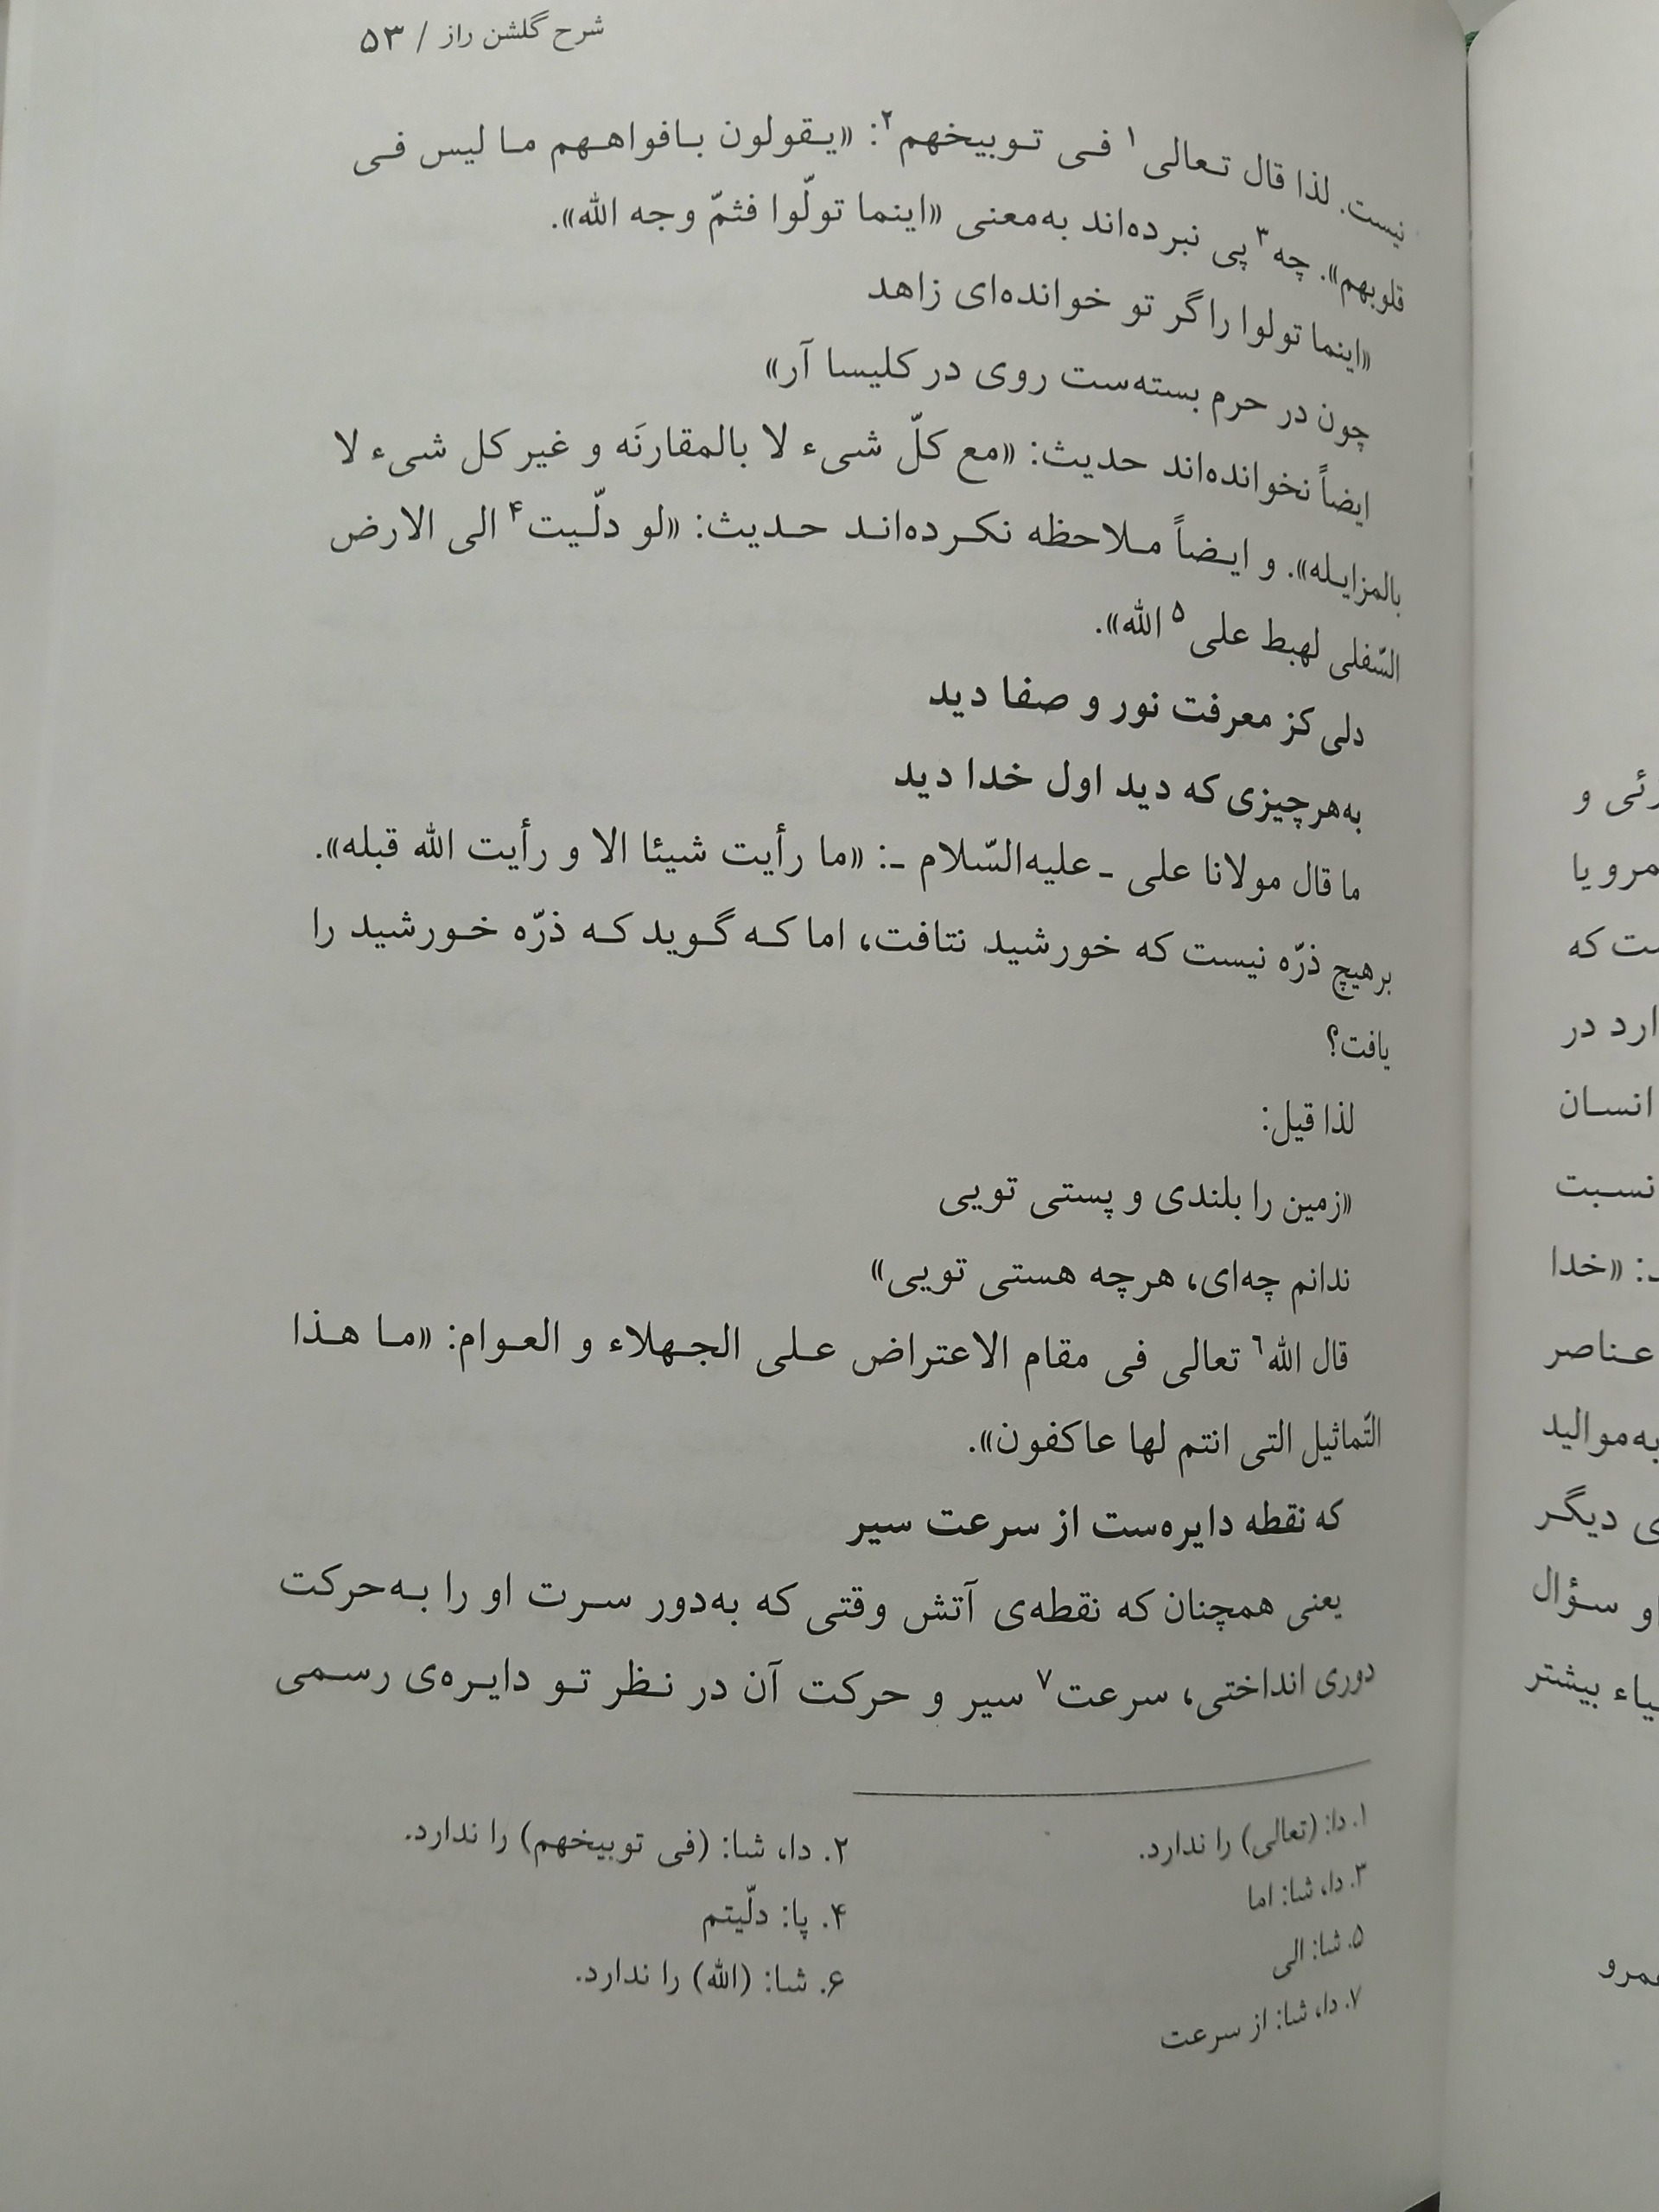 شرح گلشن راز / ۵۳
نیست. لذا قال تعالی۱ فی توبیخهم۲: «یقولون بافواههم ما لیس فی
قلوبهم». چه۳ پی نبرده‌اند به‌معنی «اینما تولّوا فثمّ وجه الله».
«اینما تولوا را گر تو خوانده‌ای زاهد
چون در حرم بسته‌ست روی در کلیسا آر»
ایضاً نخوانده‌اند حدیث: «مع کلّ شیء لا بالمقارنَه و غیر کل شیء لا
بالمزایله». و ایضاً ملاحظه نکرده‌اند حدیث: «لو دلّیت۴ الی الارض
السّفلی لهبط علی۵ الله».
دلی کز معرفت نور و صفا دید
به‌هرچیزی که دید اول خدا دید
ما قال مولانا علی ـ علیه‌السّلام ـ: «ما رأیت شیئا الا و رأیت الله قبله».
برهیچ ذرّه نیست که خورشید نتافت، اما که گوید که ذرّه خورشید را
یافت؟
لذا قیل:
«زمین را بلندی و پستی تویی
ندانم چه‌ای، هرچه هستی تویی»
قال الله۶ تعالی فی مقام الاعتراض علی الجهلاء و العوام: «ما هذا
التّماثیل التی انتم لها عاکفون».
که نقطه دایره‌ست از سرعت سیر
یعنی همچنان که نقطه‌ی آتش وقتی که به‌دور سرت او را به‌حرکت
دوری انداختی، سرعت۷ سیر و حرکت آن در نظر تو دایره‌ی رسمی
۱. دا: (تعالی) را ندارد.
۲. دا، شا: (فی توبیخهم) را ندارد.
۳. دا، شا: اما
۴. پا: دلّیتم
۵. شا: الی
۶. شا: (الله) را ندارد.
۷. دا، شا: از سرعت
رئی و
مرو یا
ست که
ارد در
انسان
نسبت
د: «خدا
عناصر
به‌موالید
ی دیگر
او سؤال
یاء بیشتر
عمرو